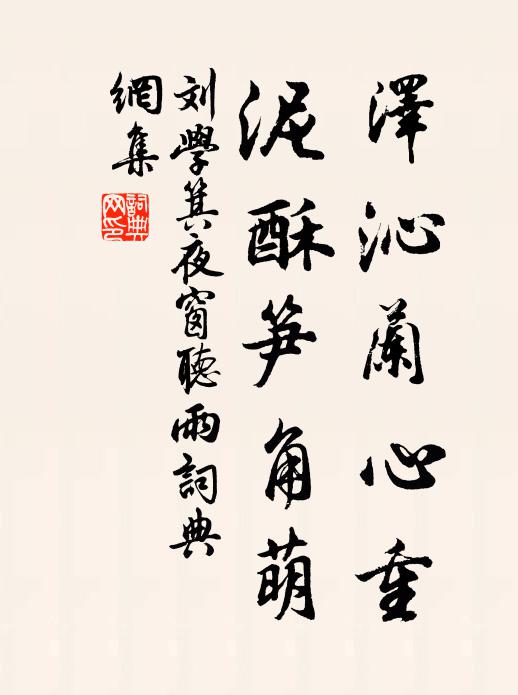 澤沁蘭心重
泥酥笋角萌
刘學箕夜窗聽雨詞典
網集
詞典
网印